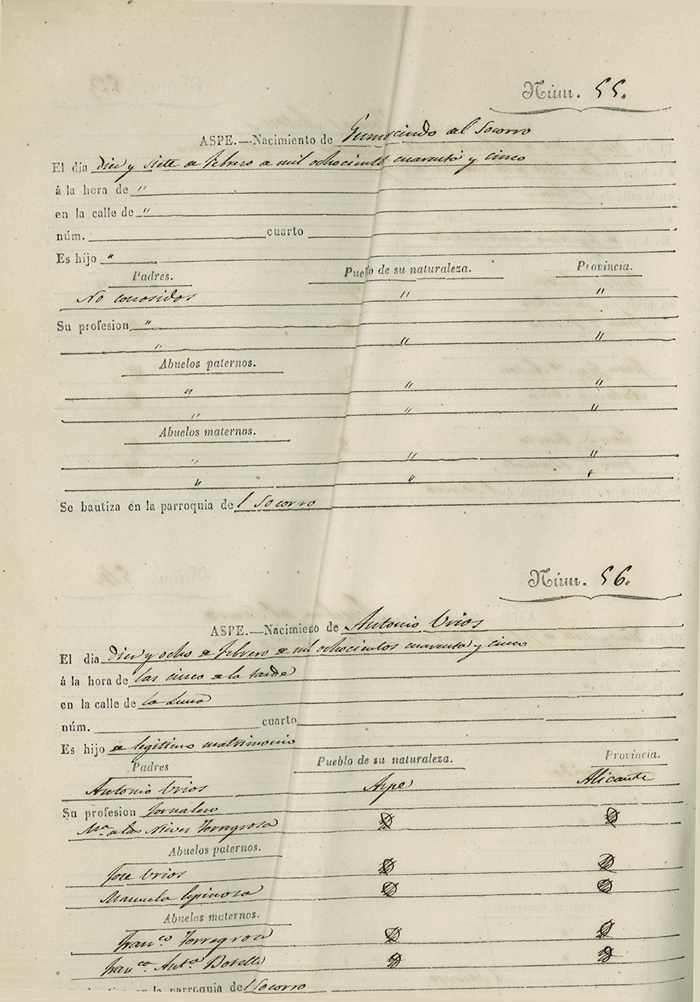 Núm. 55.
ASPE.—Nacimiento de Gumercindo del Socorro
El dia diez y siete de febrero de mil ochocientos cuarenta y cinco
á la hora de "
en la calle de "
núm. cuarto
Es hijo "
Padres. Pueblo de su naturaleza. Provincia.
No conosidos " "
Su profesion "
" " "
Abuelos paternos.
" " "
" " "
Abuelos maternos.
" " "
" " "
Se bautiza en la parroquia del Socorro
Núm. 56.
ASPE.—Nacimiento de Antonio Urios
El dia diez y ocho de febrero de mil ochocientos cuarenta y cinco
á la hora de las cinco de la tarde
en la calle de la Luna
núm. cuarto
Es hijo de legitimo matrimonio
Padres Pueblo de su naturaleza. Provincia.
Antonio Urios Aspe Alicante
Su profesion Jornalero
Ma. de las Nieves Torregrosa
Abuelos paternos.
Jose Urios
Manuela Espinosa
Abuelos maternos.
Franco. Torregrosa
Franca. Anta. Botella
en la parroquia del Socorro